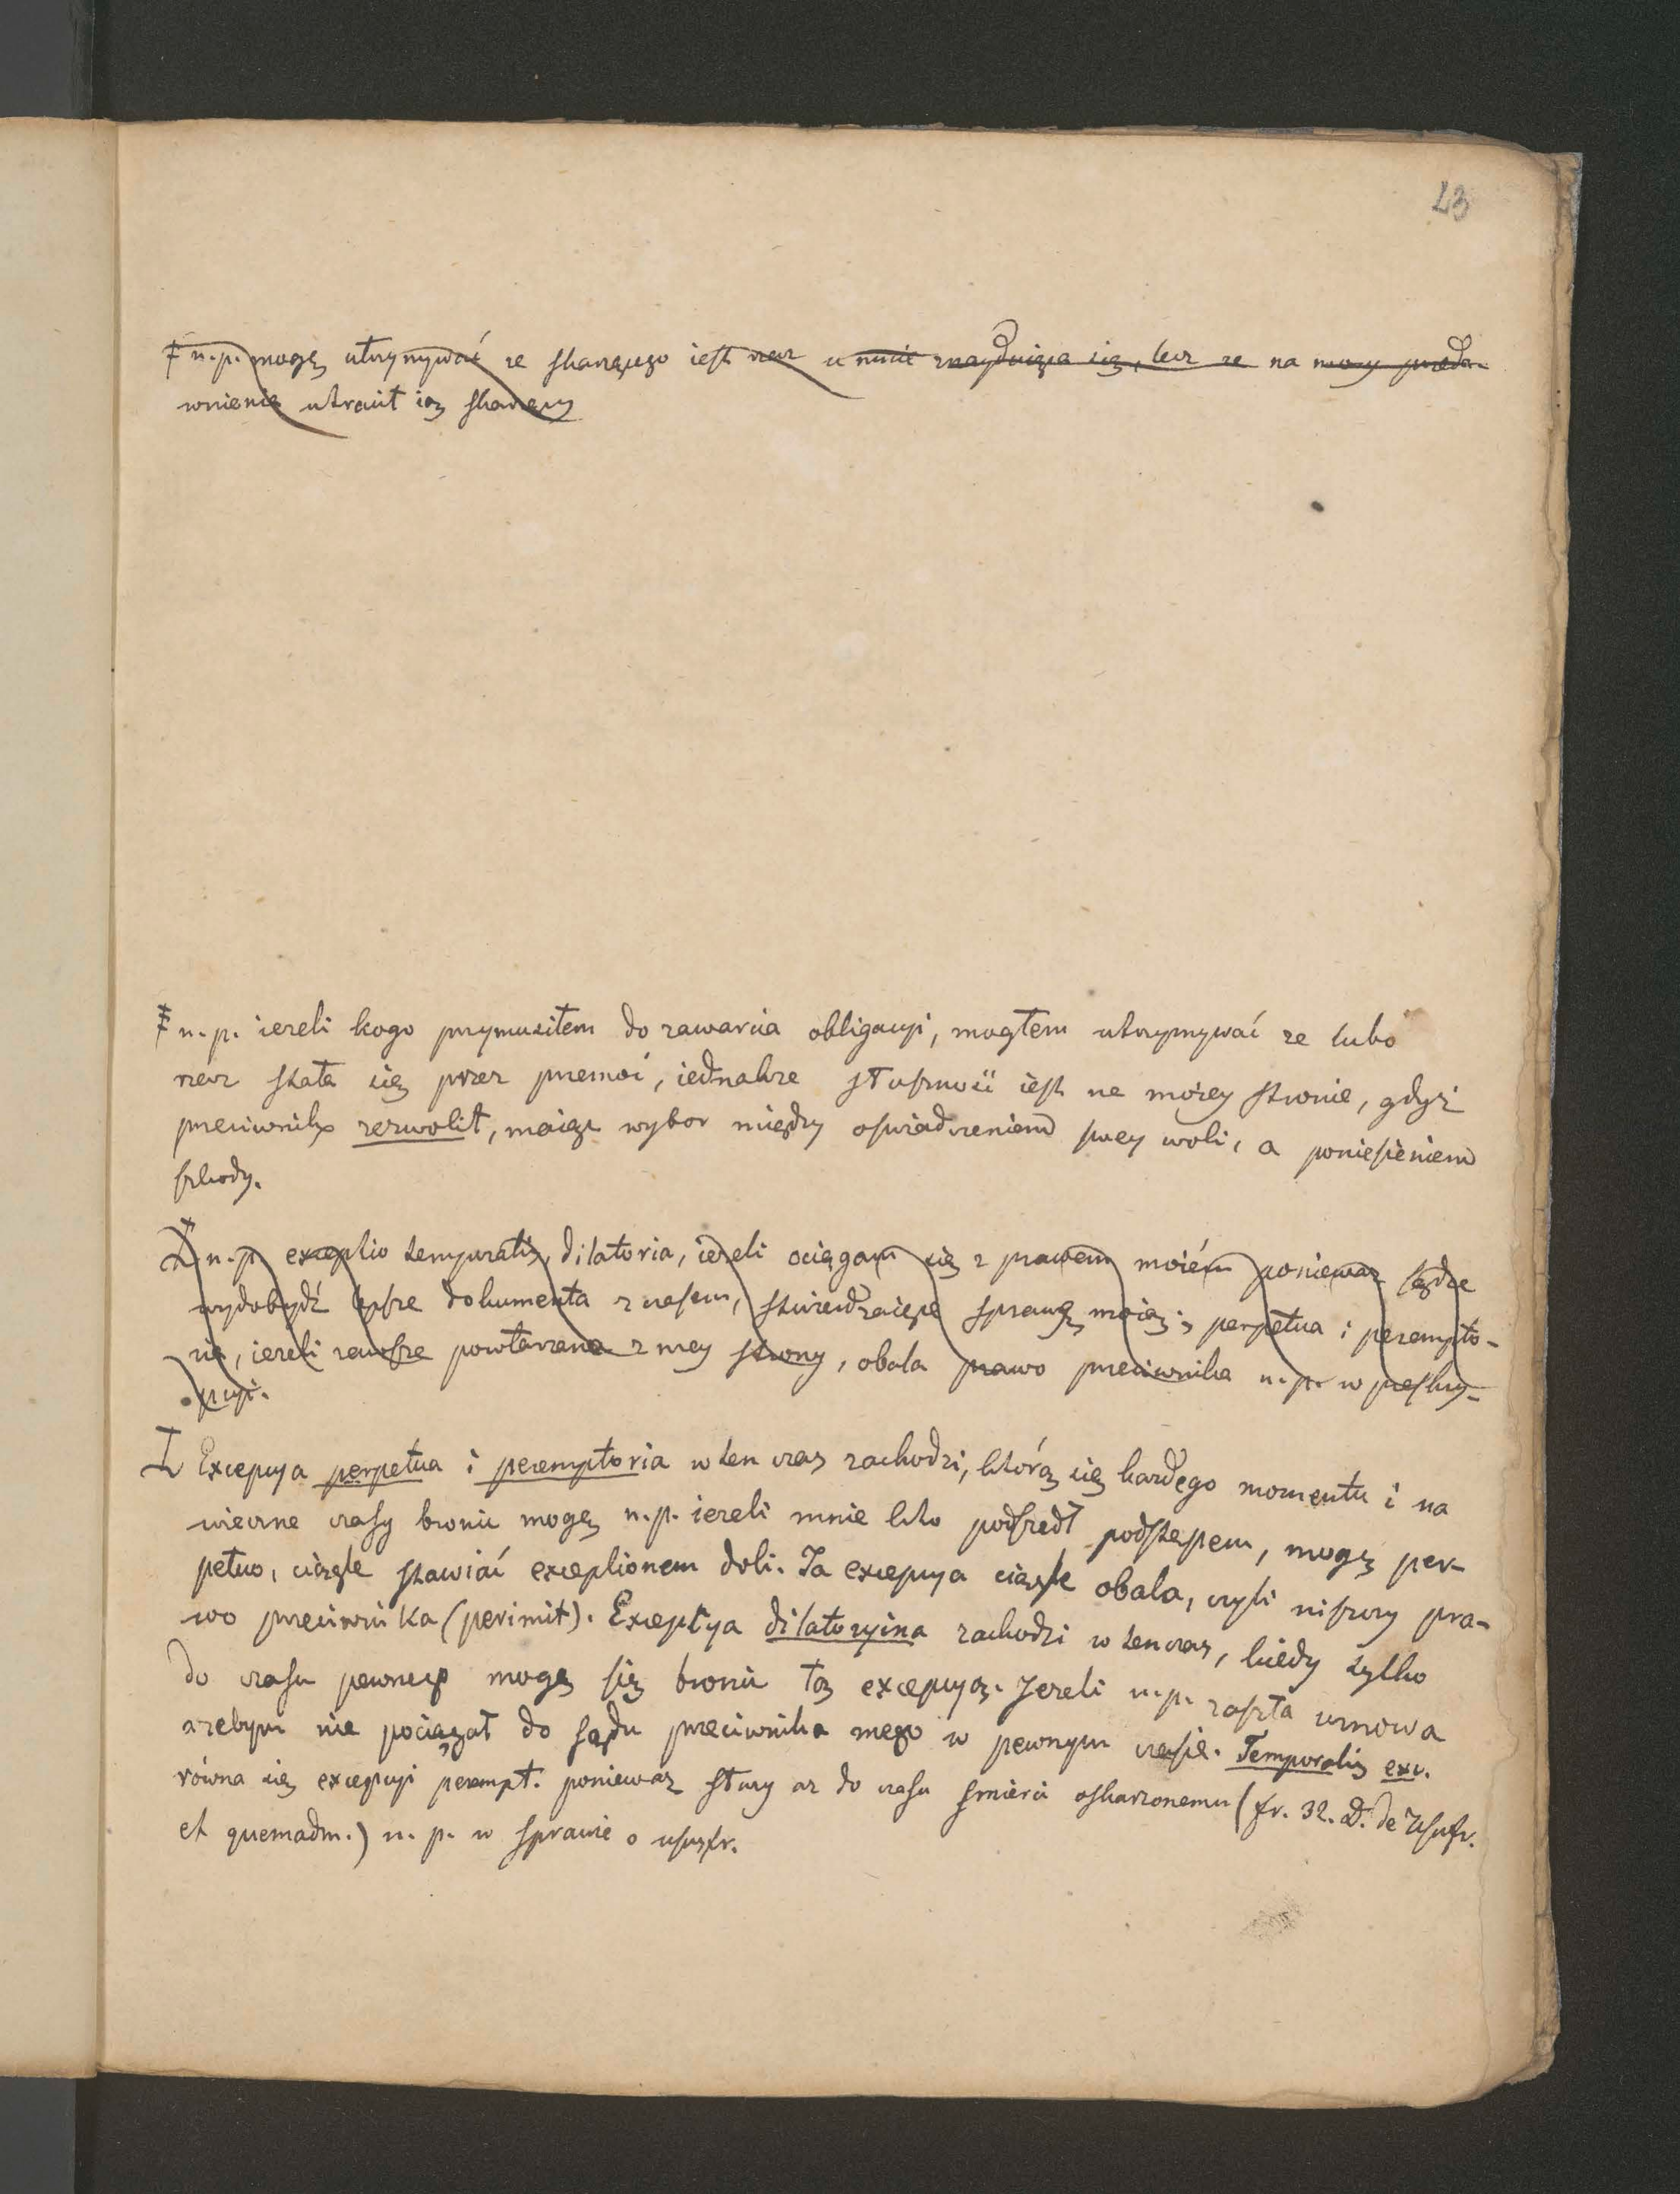 23
‡ n.p. mogę utrzymywać ze skarzącego iest rzecz u mnie znayduiąca się, lecz ze na mocy przeda-
wnienia utracił ią skarzący
‡ n.p. iezeli kogo przymusiłem do zawarcia obligacyi, mogłem utrzymywać ze lubo
rzecz stała się przez przemoc, iednakze słuszność iest na moiey stronie, gdyż
przeciwnik zezwolił, maiąc wybor między oswiadczeniem swey woli, a poniesieniem
szkody.
n.p. exceptio temporalis, dilatoria, iezeli ociągam się z prawem moiém poniewaz sądze
wydobydź lepsze dokumenta z czasem, stwierdzaiące sprawę moią; perpetua i perempto-
ria, iezeli zawsze powtarzana z mey strony, obala prawo przeciwnika n.p. w preskry-
pcyi.
I Excepcya perpetua i peremptoria w ten czas zachodzi, którą się kazdego momentu i na
wieczne czasy bronić mogę n.p. iezeli mnie kto podszedł podstępem, mogę per-
petuo, ciągle stawiać exceptionem doli. Ta excepcya ciągle obala, czyli niszczy pra-
wo przeciwnika (perimit). Exceptya dilatoryina zachodzi w tenczas, kiedy tylko
do czasu pewnego mogę się bronić tą excepcyą. Jezeli n.p. zaszła umowa
azebym nie pociągał do sądu przeciwnika mego w pewnym czasie. Temporalis exc.
równa się excepcyi perempt. poniewaz słuzy az do czasu smierci oskarzonemu (fr. 32. D. de Usufr.
et quemadm.) n. p. w sprawie o ususfr.